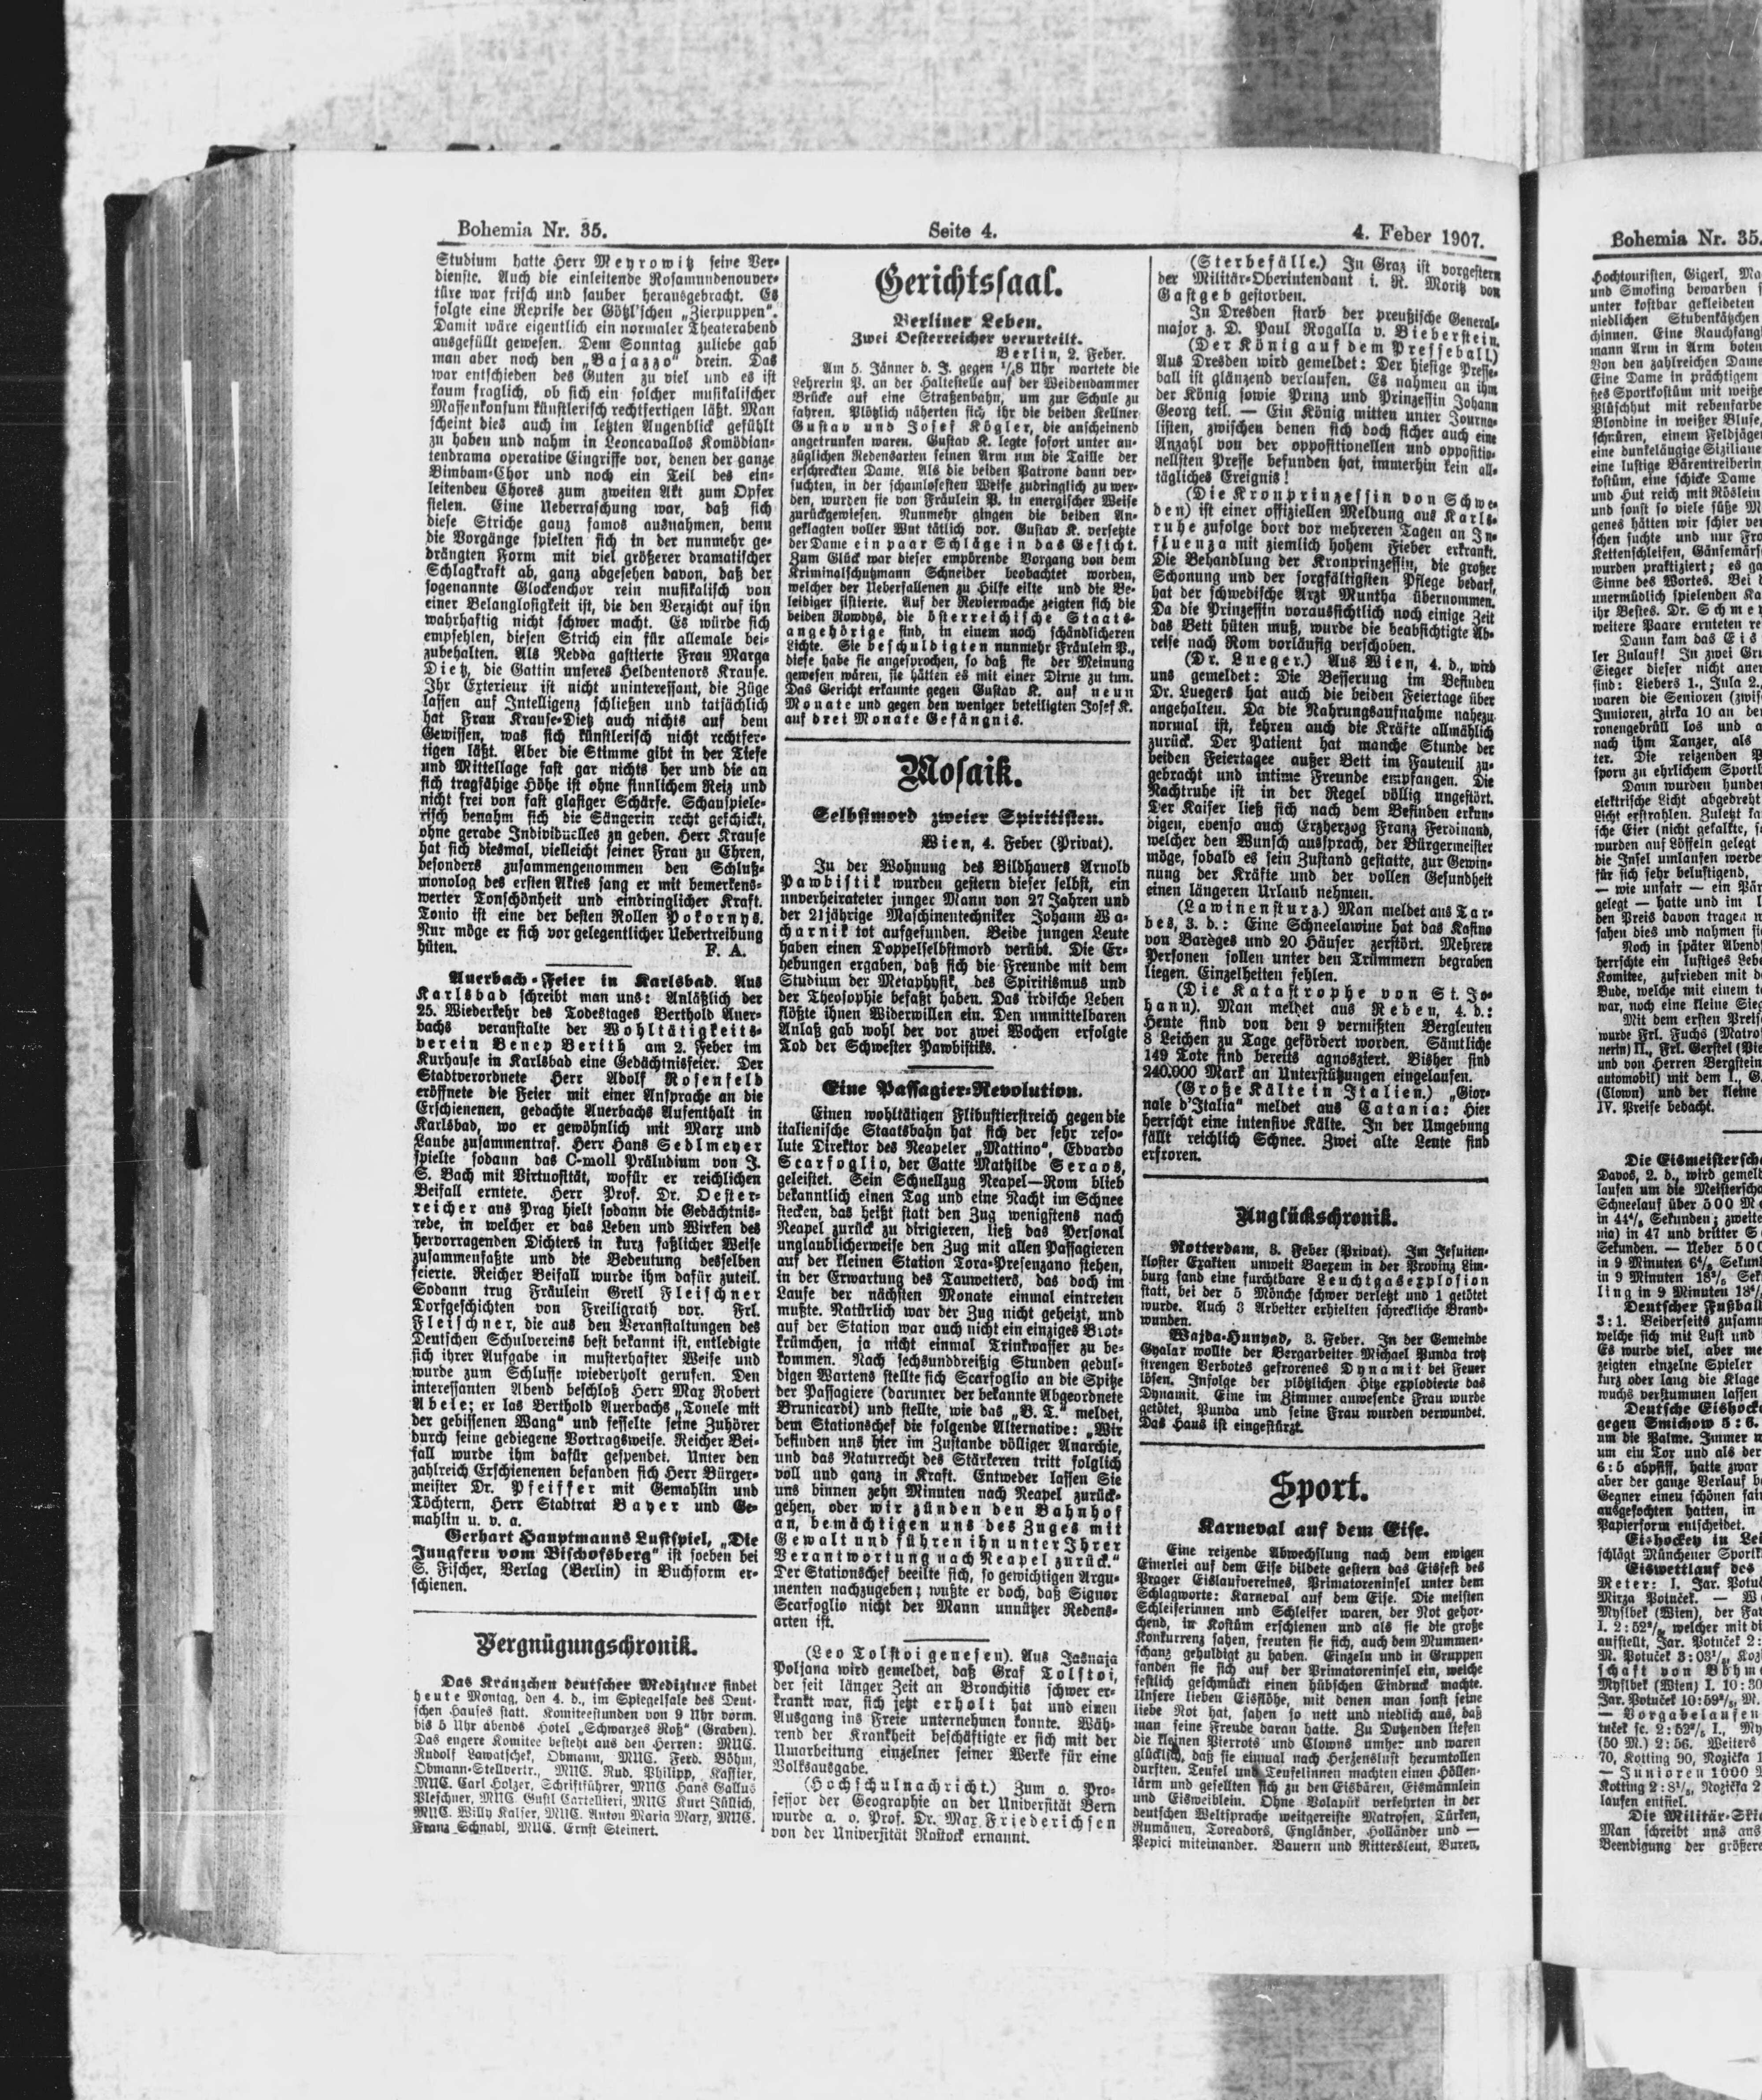 Bohemia Nr. 35.
Seite 4.
4. Feber 1907.
Studium hatte Herr Meyrowitz seine Ver-
dienste. Auch die einleitende Rosamundenouver-
türe war frisch und sauber herausgebracht. Es
folgte eine Reprise der Götzl'schen „Zierpuppen“.
Damit wäre eigentlich ein normaler Theaterabend
ausgefüllt gewesen. Dem Sonntag zuliebe gab
man aber noch den „Bajazzo“ drein. Das
war entschieden des Guten zu viel und es ist
kaum fraglich, ob sich ein solcher musikalischer
Massenkonsum künstlerisch rechtfertigen läßt. Man
scheint dies auch im letzten Augenblick gefühlt
zu haben und nahm in Leoncavallos Komödian-
tendrama operative Eingriffe vor, denen der ganze
Bimbam-Chor und noch ein Teil des ein-
leitenden Chores zum zweiten Akt zum Opfer
fielen. Eine Ueberraschung war, daß sich
diese Striche ganz famos ausnahmen, denn
die Vorgänge spielten sich in der nunmehr ge-
drängten Form mit viel größerer dramatischer
Schlagkraft ab, ganz abgesehen davon, daß der
sogenannte Glockenchor rein musikalisch von
einer Belanglosigkeit ist, die den Verzicht auf ihn
wahrhaftig nicht schwer macht. Es würde sich
empfehlen, diesen Strich ein für allemale bei-
zubehalten. Als Nedda gastierte Frau Marga
Dietz, die Gattin unseres Heldentenors Krause.
Ihr Exterieur ist nicht uninteressant, die Züge
lassen auf Intelligenz schließen und tatsächlich
hat Frau Krause-Dietz auch nichts auf dem
Gewissen, was sich künstlerisch nicht rechtfer-
tigen läßt. Aber die Stimme gibt in der Tiefe
und Mittellage fast gar nichts her und die an
sich tragfähige Höhe ist ohne sinnlichem Reiz und
nicht frei von fast glasiger Schärfe. Schauspiele-
risch benahm sich die Sängerin recht geschickt,
ohne gerade Individuelles zu geben. Herr Krause
hat sich diesmal, vielleicht seiner Frau zu Ehren,
besonders zusammengenommen den Schluß-
monolog des ersten Aktes sang er mit bemerkens-
werter Tonschönheit und eindringlicher Kraft.
Tonio ist eine der besten Rollen Pokornys.
Nur möge er sich vor gelegentlicher Uebertreibung
hüten. F. A.
Auerbach-Feier in Karlsbad. Aus
Karlsbad schreibt man uns: Anläßlich der
25. Wiederkehr des Todestages Berthold Auer-
bachs veranstalte der Wohltätigkeits-
verein Benep Berith am 2. Feber im
Kurhause in Karlsbad eine Gedächtnisfeier. Der
Stadtverordnete Herr Adolf Rosenfeld
eröffnete die Feier mit einer Ansprache an die
Erschienenen, gedachte Auerbachs Aufenthalt in
Karlsbad, wo er gewöhnlich mit Marx und
Laube zusammentraf. Herr Hans Sedlmeyer
spielte sodann das C-moll Präludium von J.
S. Bach mit Virtuosität, wofür er reichlichen
Beifall erntete. Herr Prof. Dr. Oester-
reicher aus Prag hielt sodann die Gedächtnis-
rede, in welcher er das Leben und Wirken des
hervorragenden Dichters in kurz faßlicher Weise
zusammenfaßte und die Bedeutung desselben
feierte. Reicher Beifall wurde ihm dafür zuteil.
Sodann trug Fräulein Gretl Fleischner
Dorfgeschichten von Freiligrath vor. Frl.
Fleischner, die aus den Veranstaltungen des
Deutschen Schulvereins best bekannt ist, entledigte
sich ihrer Aufgabe in musterhafter Weise und
wurde zum Schlusse wiederholt gerufen. Den
interessanten Abend beschloß Herr Max Robert
Abele; er las Berthold Auerbachs „Tonele mit
der gebissenen Wang“ und fesselte seine Zuhörer
durch seine gediegene Vortragsweise. Reicher Bei-
fall wurde ihm dafür gespendet. Unter den
zahlreich Erschienenen befanden sich Herr Bürger-
meister Dr. Pfeiffer mit Gemahlin und
Töchtern, Herr Stadtrat Bayer und Ge-
mahlin u. v. a.
Gerhart Hauptmanns Lustspiel, „Die
Jungfern vom Bischofsberg“ ist soeben bei
S. Fischer, Verlag (Berlin) in Buchform er-
schienen.
Vergnügungschronik.
Das Kränzchen deutscher Mediziner findet
heute Montag, den 4. d., im Spiegelsale des Deut-
schen Hauses statt. Komiteestunden von 9 Uhr vorm.
bis 5 Uhr abends Hotel „Schwarzes Roß“ (Graben).
Das engere Komitee besteht aus den Herren: MUC.
Rudolf Lawatschek, Obmann, MUC. Ferd. Böhm,
Obmann-Stellvertr., MUC. Rud. Philipp, Kassier,
MUC. Carl Holzer, Schriftführer, MUC Hans Gallus
Pleschner, MUC. Gustl Cartellieri, MUC Kurt Jüllich,
MUC. Willy Kaiser, MUC. Anton Maria Marx, MUC.
Franz Schnabl, MUC. Ernst Steinert.
Gerichtssaal.
Berliner Leben.
Zwei Oesterreicher verurteilt.
Berlin, 2. Feber.
Am 5. Jänner d. J. gegen ¼8 Uhr wartete die
Lehrerin P. an der Haltestelle auf der Weidendammer
Brücke auf eine Straßenbahn, um zur Schule zu
fahren. Plötzlich näherten sich ihr die beiden Kellner
Gustav und Josef Kögler, die anscheinend
angetrunken waren. Gustav K. legte sofort unter an-
züglichen Redensarten seinen Arm um die Taille der
erschreckten Dame. Als die beiden Patrone dann ver-
suchten, in der schamlosesten Weise zudringlich zu wer-
den, wurden sie von Fräulein P. in energischer Weise
zurückgewiesen. Nunmehr gingen die beiden An-
geklagten voller Wut tätlich vor. Gustav K. versetzte
der Dame ein paar Schläge in das Gesicht.
Zum Glück war dieser empörende Vorgang von dem
Kriminalschutzmann Schneider beobachtet worden,
welcher der Ueberfallenen zu Hilfe eilte und die Be-
leidiger sistierte. Auf der Revierwache zeigten sich die
beiden Rowdys, die österreichische Staats-
angehörige sind, in einem noch schändlicheren
Lichte. Sie beschuldigten nunmehr Fräulein P.,
diese habe sie angesprochen, so daß sie der Meinung
gewesen wären, sie hätten es mit einer Dirne zu tun.
Das Gericht erkannte gegen Gustav K. auf neun
Monate und gegen den weniger beteiligten Josef K.
auf drei Monate Gefängnis.
Mosaik.
Selbstmord zweier Spiritisten.
Wien, 4. Feber (Privat).
In der Wohnung des Bildhauers Arnold
Pawbistik wurden gestern dieser selbst, ein
unverheirateter junger Mann von 27 Jahren und
der 21jährige Maschinentechniker Johann Wa-
charnik tot aufgefunden. Beide jungen Leute
haben einen Doppelselbstmord verübt. Die Er-
hebungen ergaben, daß sich die Freunde mit dem
Studium der Metaphysik, des Spiritismus und
der Theosophie befaßt haben. Das irdische Leben
flößte ihnen Widerwillen ein. Den unmittelbaren
Anlaß gab wohl der vor zwei Wochen erfolgte
Tod der Schwester Pawbistiks.
Eine Passagier-Revolution.
Einen wohltätigen Flibustierstreich gegen die
italienische Staatsbahn hat sich der sehr reso-
lute Direktor des Neapeler „Mattino“, Edvardo
Scarfoglio, der Gatte Mathilde Seraos,
geleistet. Sein Schnellzug Neapel—Rom blieb
bekanntlich einen Tag und eine Nacht im Schnee
stecken, das heißt statt den Zug wenigstens nach
Neapel zurück zu dirigieren, ließ das Personal
unglaublicherweise den Zug mit allen Passagieren
auf der kleinen Station Tora-Presenzano stehen,
in der Erwartung des Tauwetters, das doch im
Laufe der nächsten Monate einmal eintreten
mußte. Natürlich war der Zug nicht geheizt, und
auf der Station war auch nicht ein einziges Brot-
krümchen, ja nicht einmal Trinkwasser zu be-
kommen. Nach sechsunddreißig Stunden gedul-
digen Wartens stellte sich Scarfoglio an die Spitze
der Passagiere (darunter der bekannte Abgeordnete
Brunicardi) und stellte, wie das „B. T.“ meldet,
dem Stationschef die folgende Alternative: „Wir
befinden uns hier im Zustande völliger Anarchie,
und das Naturrecht des Stärkeren tritt folglich
voll und ganz in Kraft. Entweder lassen Sie
uns binnen zehn Minuten nach Neapel zurück-
gehen, oder wir zünden den Bahnhof
an, bemächtigen uns des Zuges mit
Gewalt und führen ihn unter Ihrer
Verantwortung nach Neapel zurück.“
Der Stationschef beeilte sich, so gewichtigen Argu-
menten nachzugeben; wußte er doch, daß Signor
Scarfoglio nicht der Mann unnützer Redens-
arten ist.
(Leo Tolstoi genesen). Aus Jasnaja
Poljana wird gemeldet, daß Graf Tolstoi,
der seit längerer Zeit an Bronchitis schwer er-
krankt war, sich jetzt erholt hat und einen
Ausgang ins Freie unternehmen konnte. Wäh-
rend der Krankheit beschäftigte er sich mit der
Umarbeitung einzelner seiner Werke für eine
Volksausgabe.
(Hochschulnachricht.) Zum o. Pro-
fessor der Geographie an der Universität Bern
wurde a. o. Prof. Dr. Max Friederichsen
von der Universität Rostock ernannt.
(Sterbefälle.) In Graz ist vorgestern
der Militär-Oberintendant i. R. Moritz von
Gastgeb gestorben.
In Dresden starb der preußische General-
major z. D. Paul Rogalla v. Bieberstein.
(Der König auf dem Presseball.)
Aus Dresden wird gemeldet: Der hiesige Presse-
ball ist glänzend verlaufen. Es nahmen an ihm
der König sowie Prinz und Prinzessin Johann
Georg teil. — Ein König mitten unter Journa-
listen, zwischen denen sich doch sicher auch eine
Anzahl von der oppositionellen und oppositio-
nellsten Presse befunden hat, immerhin kein all-
tägliches Ereignis!
(Die Kronprinzessin von Schwe-
den) ist einer offiziellen Meldung aus Karls-
ruhe zufolge dort vor mehreren Tagen an In-
fluenza mit ziemlich hohem Fieber erkrankt.
Die Behandlung der Kronprinzessin, die großer
Schonung und der sorgfältigsten Pflege bedarf,
hat der schwedische Arzt Muntha übernommen.
Da die Prinzessin voraussichtlich noch einige Zeit
das Bett hüten muß, wurde die beabsichtigte Ab-
reise nach Rom vorläufig verschoben.
(Dr. Lueger.) Aus Wien, 4. d., wird
uns gemeldet: Die Besserung im Befinden
Dr. Luegers hat auch die beiden Feiertage über
angehalten. Da die Nahrungsaufnahme nahezu
normal ist, kehren auch die Kräfte allmählich
zurück. Der Patient hat manche Stunde der
beiden Feiertagee außer Bett im Fauteuil zu-
gebracht und intime Freunde empfangen. Die
Nachtruhe ist in der Regel völlig ungestört.
Der Kaiser ließ sich nach dem Befinden erkun-
digen, ebenso auch Erzherzog Franz Ferdinand,
welcher den Wunsch aussprach, der Bürgermeister
möge, sobald es sein Zustand gestatte, zur Gewin-
nung der Kräfte und der vollen Gesundheit
einen längeren Urlaub nehmen.
(Lawinensturz.) Man meldet aus Tar-
bes, 3. d.: Eine Schneelawine hat das Kasino
von Barèges und 20 Häuser zerstört. Mehrere
Personen sollen unter den Trümmern begraben
liegen. Einzelheiten fehlen.
(Die Katastrophe von St. Jo-
hann). Man meldet aus Reden, 4. d.:
Heute sind von den 9 vermißten Bergleuten
8 Leichen zu Tage gefördert worden. Sämtliche
149 Tote sind bereits agnosziert. Bisher sind
240.000 Mark an Unterstützungen eingelaufen.
(Große Kälte in Italien.) „Gior-
nale d'Italia“ meldet aus Catania: Hier
herrscht eine intensive Kälte. In der Umgebung
fällt reichlich Schnee. Zwei alte Leute sind
erfroren.
Unglückschronik.
Rotterdam, 3. Feber (Privat). Im Jesuiten-
kloster Exakten unweit Baexem in der Provinz Lim-
burg fand eine furchtbare Leuchtgasexplosion
statt, bei der 5 Mönche schwer verletzt und 1 getötet
wurde. Auch 3 Arbeiter erhielten schreckliche Brand-
wunden.
Wajda-Hunyad, 3. Feber. In der Gemeinde
Gyalar wollte der Bergarbeiter Michael Punda trotz
strengen Verbotes gefrorenes Dynamit bei Feuer
lösen. Infolge der plötzlichen Hitze explodierte das
Dynamit. Eine im Zimmer anwesende Frau wurde
getötet, Punda und seine Frau wurden verwundet.
Das Haus ist eingestürzt.
Sport.
Karneval auf dem Eise.
Eine reizende Abwechslung nach dem ewigen
Einerlei auf dem Eise bildete gestern das Eisfest des
Prager Eislaufvereines, Primatoreninsel unter dem
Schlagworte: Karneval auf dem Eise. Die meisten
Schleiferinnen und Schleifer waren, der Not gehor-
chend, in Kostüm erschienen und als sie die große
Konkurrenz sahen, freuten sie sich, auch dem Mummen-
schanz gehuldigt zu haben. Einzeln und in Gruppen
fanden sie sich auf der Primatoreninsel ein, welche
festlich geschmückt einen hübschen Eindruck machte.
Unsere lieben Eisflöhe, mit denen man sonst seine
liebe Not hat, sahen so nett und niedlich aus, daß
man seine Freude daran hatte. Zu Dutzenden liefen
die kleinen Pierrots und Clowns umher und waren
glücklich, daß sie einmal nach Herzenslust herumtollen
durften. Teufel und Teufelinnen machten einen Höllen-
lärm und gesellten sich zu den Eisbären, Eismännlein
und Eisweiblein. Ohne Volapük verkehrten in der
deutschen Weltsprache weitgereiste Matrosen, Türken,
Rumänen, Toreadors, Engländer, Holländer und —
Pepici miteinander. Bauern und Rittersleut, Buren,
Bohemia Nr. 35.
Hochtouristen, Gigerl,
und Smoking bewarben
unter kostbar gekleideten
niedlichen Stubenkätzchen
Eine Rauchfang
mann Arm in Arm boten
Von den zahlreichen Dame
Eine Dame in prächtigem
Plüschhut mit rebenfarbe
Blondine in weißer Bluse,
schnüren, einem Feldjäger
eine dunkeläugige Siziliane
eine lustige Bärentreiberin
kostüm, eine schicke Dame
und Hut reich mit Röslein
und sonst so viele süße
genes hätten wir schier
schen suchte und nur
Kettenschleifen, Gänsemärs
wurden praktiziert; es
Sinne des Wortes. Bei
unermüdlich spielenden
ihr Bestes. Dr. Schme
weitere Paare ernteten
Dann kam das Eis
ler Zulauf! In zwei
Sieger dieser nicht
sind: Liebers 1., Jula 2.,
waren die Senioren
Junioren, zirka 10 an
ronengebrüll los und
nach ihm Tanzer, als
ter. Die reizenden
sporn zu ehrlichem Sport
Dann wurden hunder
elektrische Licht abgedreht
Licht erstrahlen. Zuletzt
sche Eier (nicht gefalkte,
wurden auf Löffeln gelegt
die Insel umlaufen werde
für sich sehr belustigend,
— wie unfair — ein
gelegt — hatte und im
den Preis davon tragen
sahen dies und nahmen
Noch in später Abend
herrschte ein lustiges Lebe
Komitee, zufrieden mit
Bude, welche mit einem
war, noch eine kleine
Mit dem ersten Preise
wurde Frl. Fuchs (Matro
nerin) II., Frl. Gerstel
und von Herren Bergstein
automobil) mit dem I.,
(Clown) und der kleine
IV. Preise bedacht.
Die Eismeistersch
Davos, 2. d., wird gemeld
laufen um die Meisterscha
Schneelauf über 500
in 44⅘ Sekunden; zweite
nia) in 47 und dritter
Sekunden. — Ueber 500
in 9 Minuten
in 9 Minuten
ling in 9 Minuten
Deutscher Fußball
3:1. Beiderseits zusamm
welche sich mit Lust und
Es wurde viel, aber
zeigten einzelne Spieler
kurz oder lang die Klage
wuchs verstummen lassen
Deutsche Eishocke
gegen Smichow 5:6.
um die Palme. Immer
um ein Tor und als der
6:5 abpfiff, hatte zwar
aber der ganze Verlauf
Gegner einen schönen
ausgefochten hatten, in
Papierform entscheidet.
Eishockey in
schlägt Münchener Sport
Eiswettlauf des
Meter: I. Jar.
Mirza Potuček. —
Myslbek (Wien), der
I. 2:52⅘, welcher mit
aufstellt, Jar. Potuček 2:
M. Potuček 3:03
schaft von Böhm
Myslbek (Wien) I. 10:30
Jar. Potuček
— Vorgabelaufen
(50 M.) 2:56. Weiters
70, Kotting 90, Rozička
— Junioren 1000
Kotting
laufen entfiel.
Die Militär-Ski
Man schreibt uns aus
Beendigung der größere